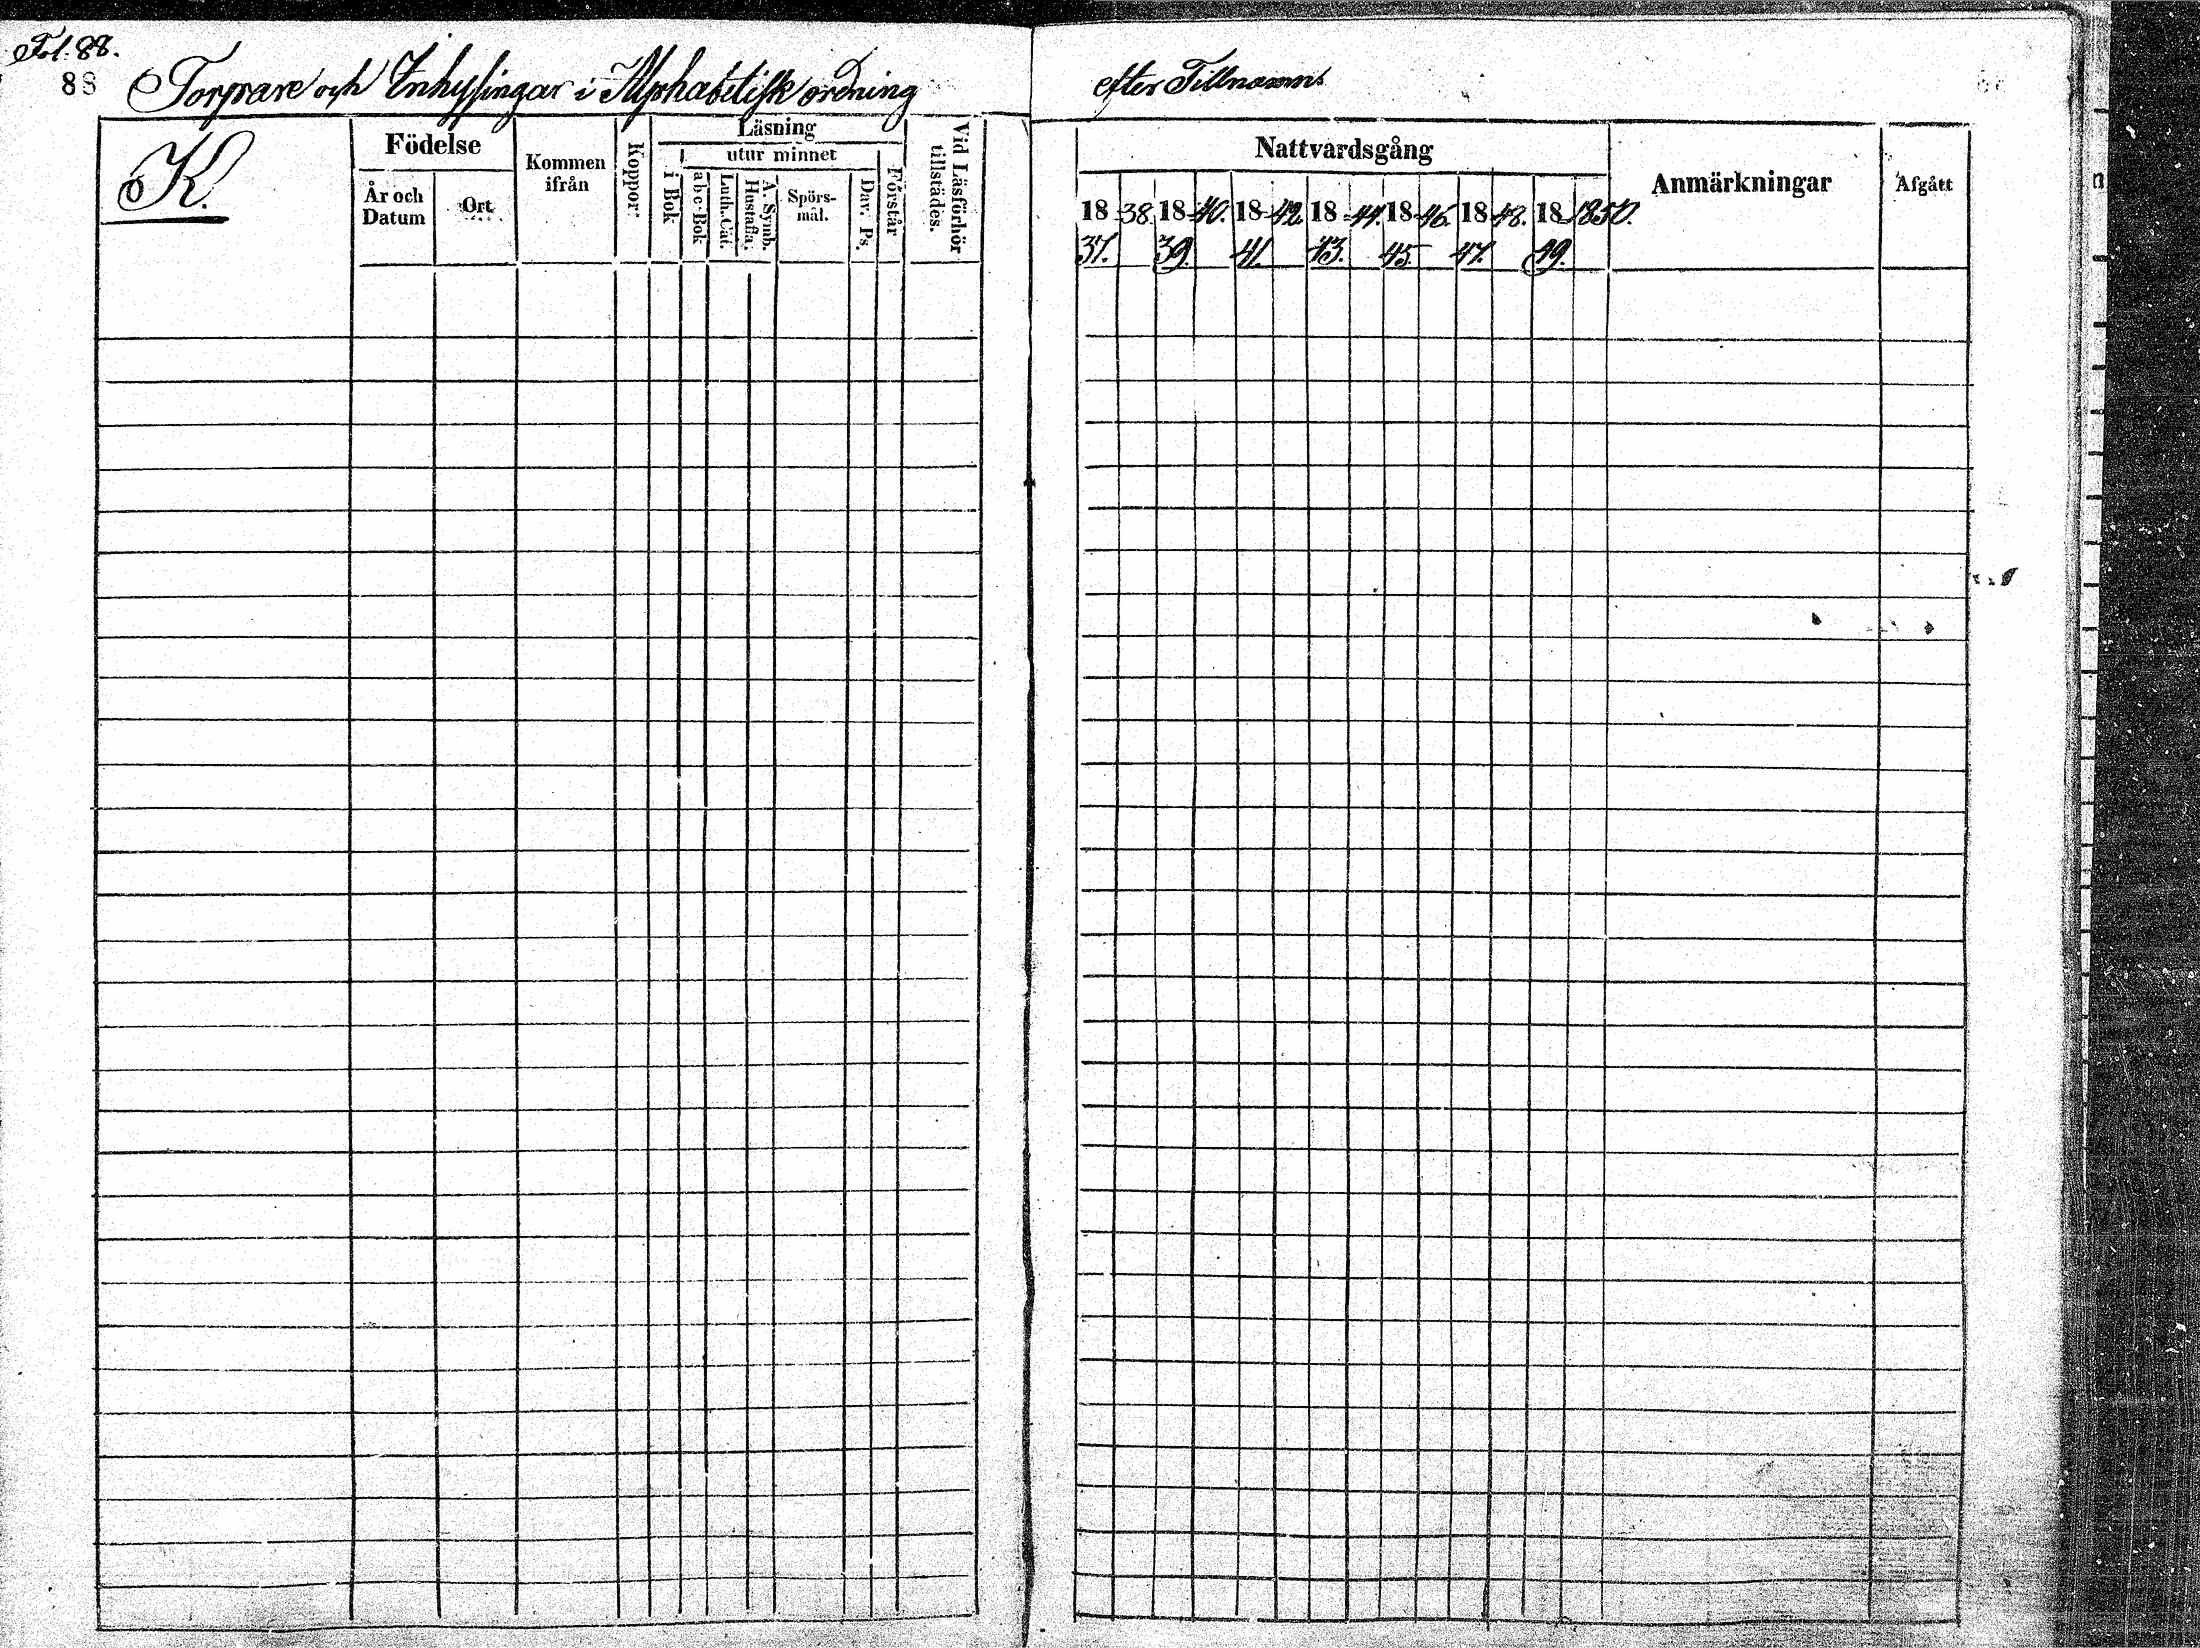 Fol. 88.
88
Torpare och Inhysingar i Alphabetisk ordning
K.
Födelse
År och Datum
Ort
Kommen ifrån
Koppor
Läsning
utur minnet
i Bok
a b c-Bok
Luth. Cat.
A. Symb. Hustafla.
Spörs-mål.
Dav. Ps.
Förstår
Vid Läsförhör tillstädes.
efter Tillnamn
Nattvardsgång
Anmärkningar
Afgått
18 38. 18 40. 18 42. 18 44. 18 46. 18 48. 18 1850.
37. 39. 41. 43. 45 47. 49.